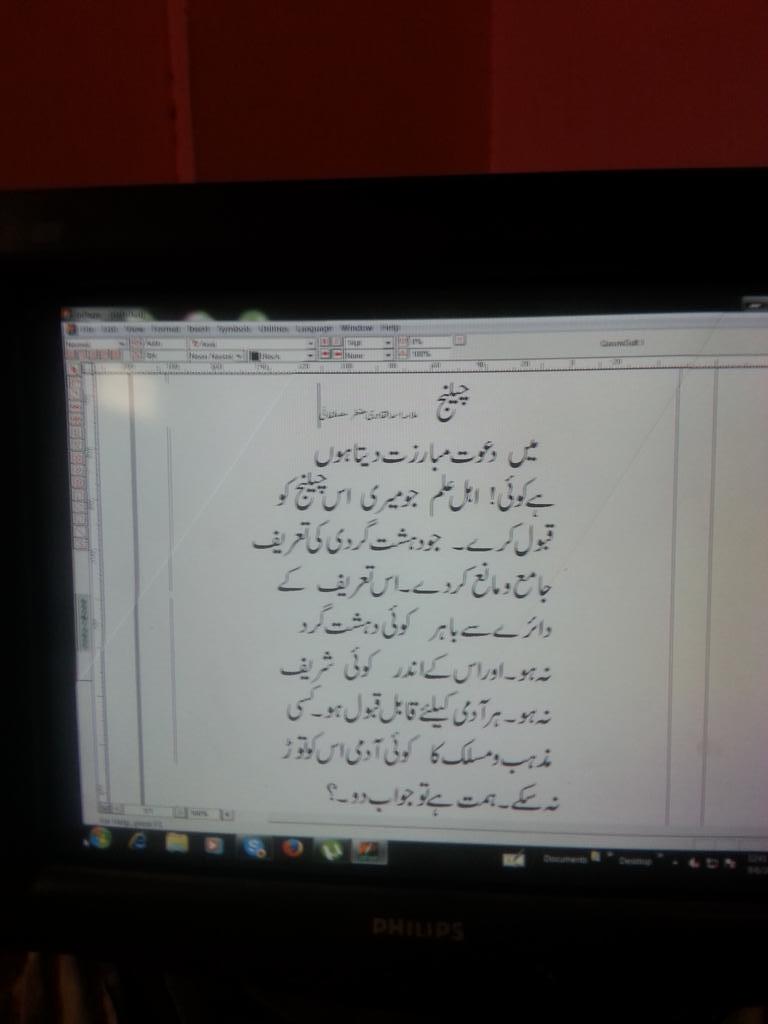 File Edit View Format Insert Symbols Utilities Language Window Help
Normal
0%
None
100%
چیلنج
میں دعوت مبارزت دیتا ہوں
ہے کوئی! اہل علم جو میری اس چیلنج کو
قبول کرے۔ جو دہشت گردی کی تعریف
جامع و مانع کردے۔ اس تعریف کے
دائرے سے باہر کوئی دہشت گرد
نہ ہو۔ اور اس کے اندر کوئی شریف
نہ ہو۔ ہر آدمی کیلئے قابل قبول ہو۔ کسی
مذہب و مسلک کا کوئی آدمی اس کو توڑ
نہ سکے۔ ہمت ہے تو جواب دو۔؟
100%
Documents
Desktop
PHILIPS